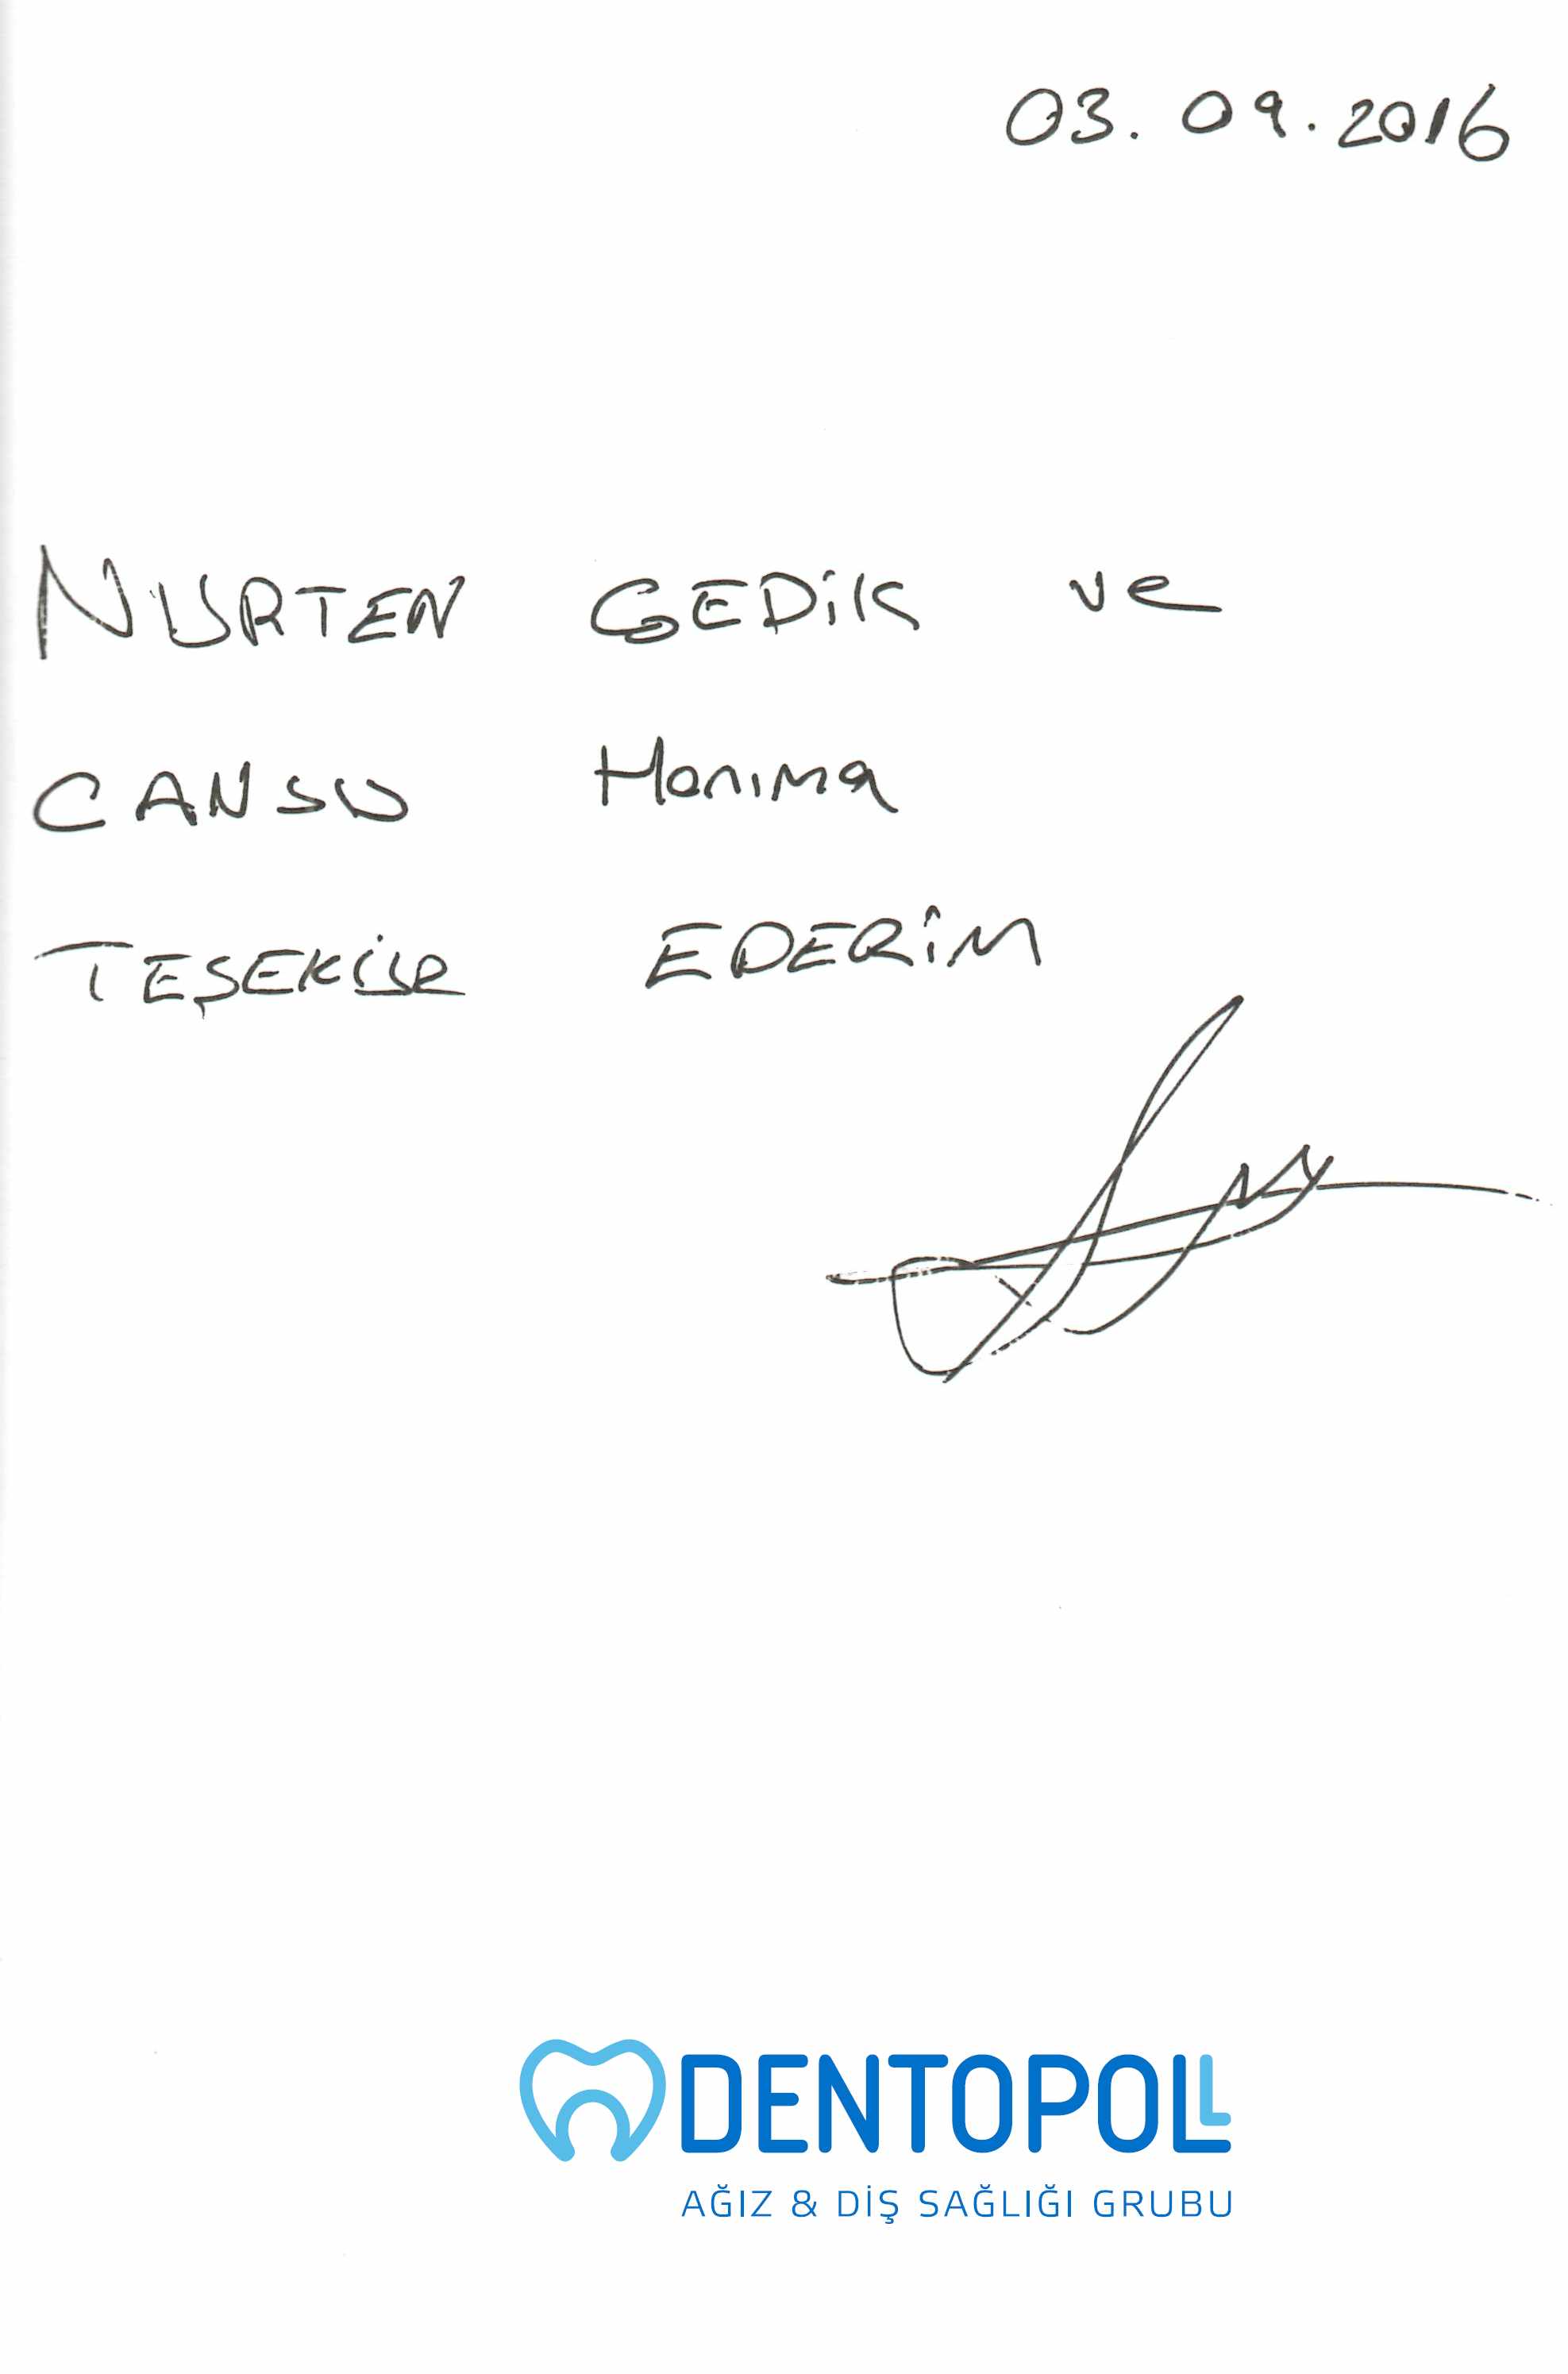 03.09.2016
NURTEN GEDİK ve
CANSU Hanıma
TEŞEKÜR EDERİM
DENTOPOLL
AĞIZ & DİŞ SAĞLIĞI GRUBU